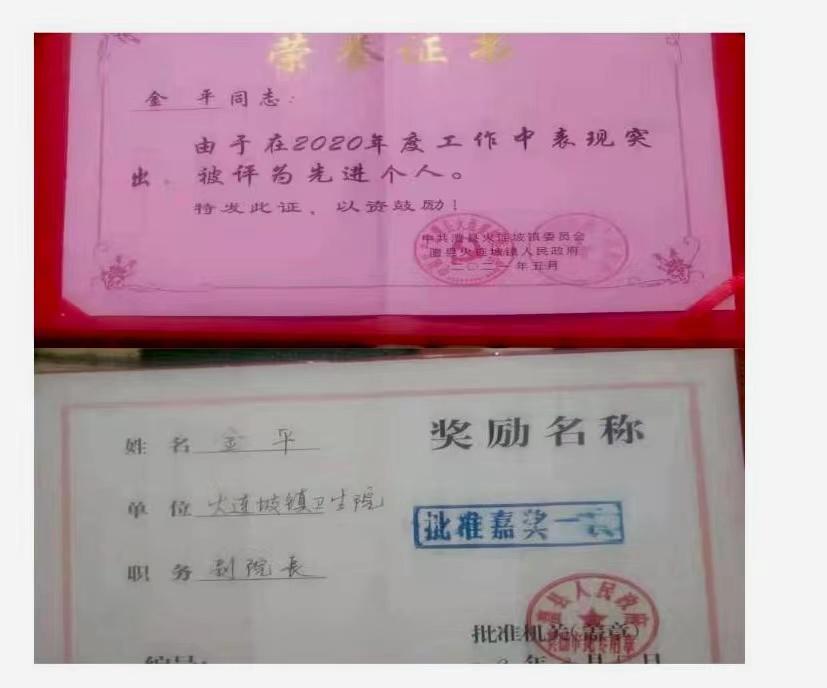 荣誉证书
金平同志：
由于在2020年度工作中表现突
出，被评为先进个人。
特发此证，以资鼓励！
中共澧县火连坡镇委员会
澧县火连坡镇人民政府
二〇二一年五月
姓名 金平
单位 火连坡镇卫生院
职务 副院长
奖励名称
批准嘉奖一
澧县人民政府
批准机关(盖章)
编号: